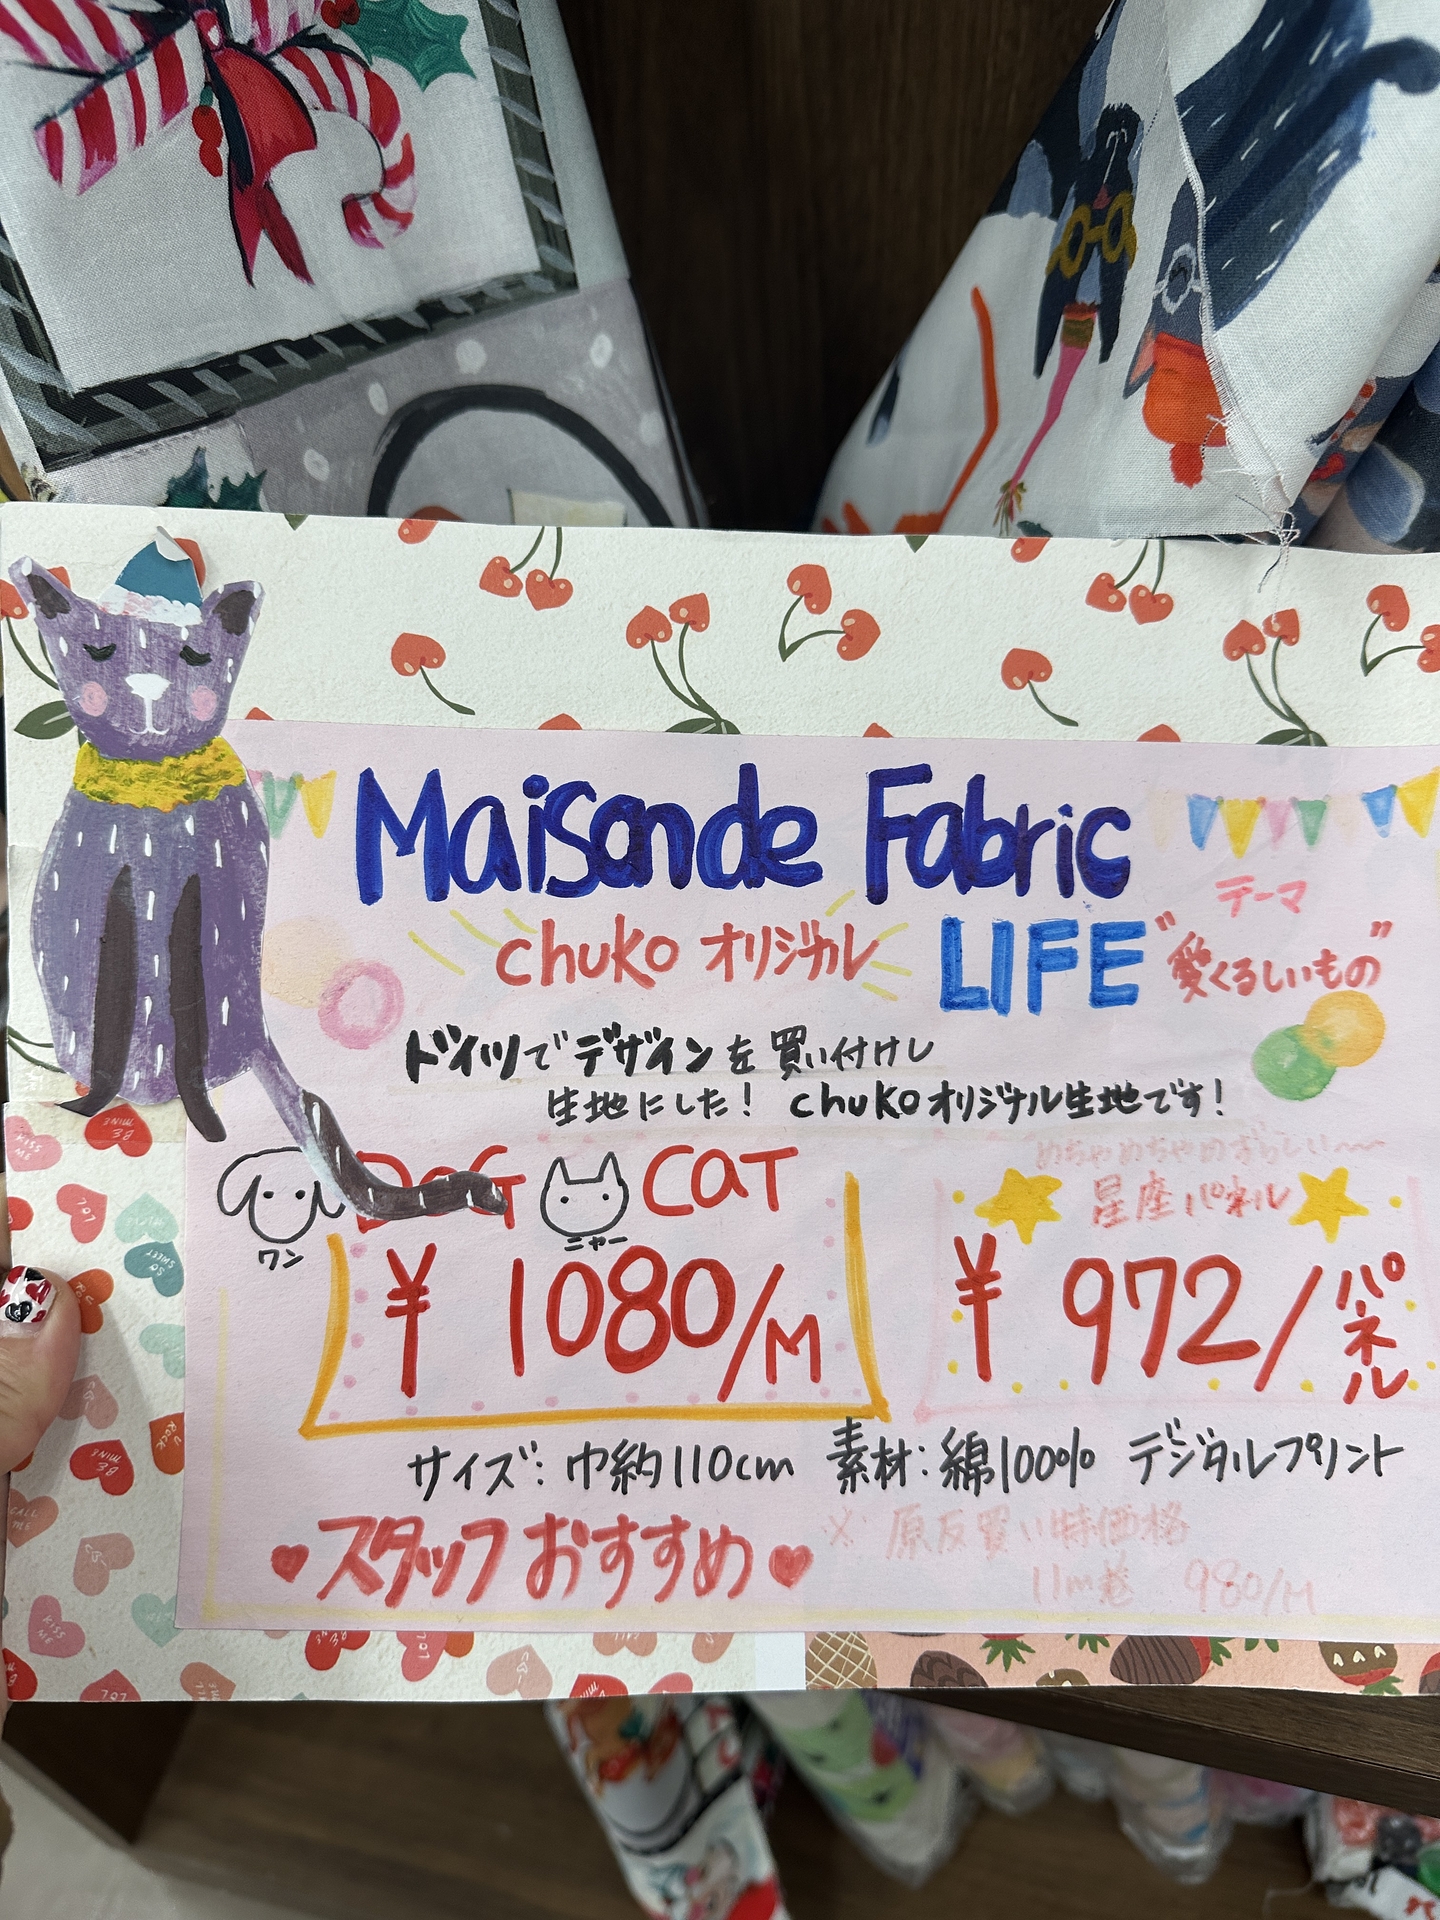 Maisonde Fabric
テーマ
chuko オリジナル LIFE "愛くるしいもの"
ドイツでデザインを買い付けし
生地にした! chukoオリジナル生地です!
めちゃめちゃめずらしい〜
DOG CAT 星座パネル
ワン ニャー
¥1080/M ¥972/パネル
サイズ:巾約110cm 素材:綿100% デジタルプリント
♥スタッフおすすめ♥ ※原反買い特価格
11m巻 980/M
KISS ME
BE MINE
LOL
SO SWEET
U ROCK
BE MINE
CALL ME
KISS ME
LOL